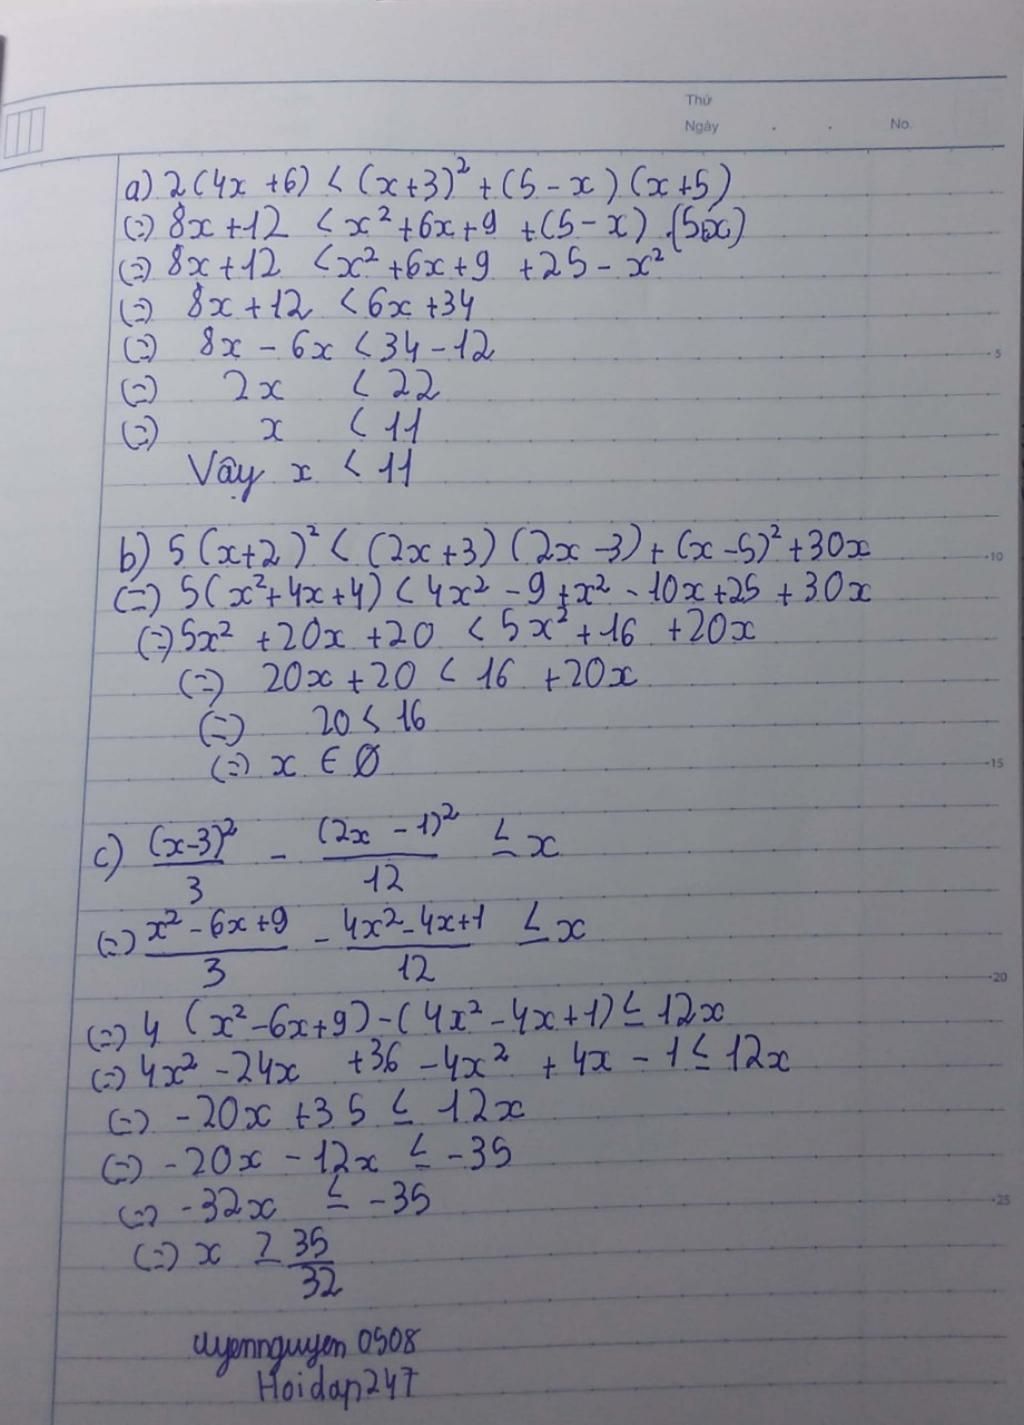 Thứ
Ngày . . No.
a) 2(4x+6) < (x+3)² + (5-x)(x+5)
(=) 8x+12 < x²+6x+9 + (5-x).(5+x)
(=) 8x+12 < x²+6x+9 +25-x²
(=) 8x+12 < 6x+34
(=) 8x - 6x < 34-12
(=) 2x < 22
(=) x < 11
Vậy x < 11
b) 5(x+2)² < (2x+3)(2x-3)+(x-5)²+30x
(=) 5(x²+4x+4) < 4x² - 9 + x² - 10x+25 + 30x
(=) 5x² +20x +20 < 5x²+16 +20x
(=) 20x+20 < 16 +20x
(=) 20 < 16
(=) x ∈ Ø
c) (x-3)²/3 - (2x-1)²/12 ≤ x
(=) x²-6x+9/3 - 4x²-4x+1/12 ≤ x
(=) 4 (x²-6x+9)-(4x²-4x+1) ≤ 12x
(=) 4x² -24x +36 -4x² + 4x - 1 ≤ 12x
(=) -20x +35 ≤ 12x
(=) -20x - 12x ≤ -35
(=) -32x ≤ -35
(=) x ≥ 35/32
uyennguyen 0508
Hoidap247
5
10
15
20
25